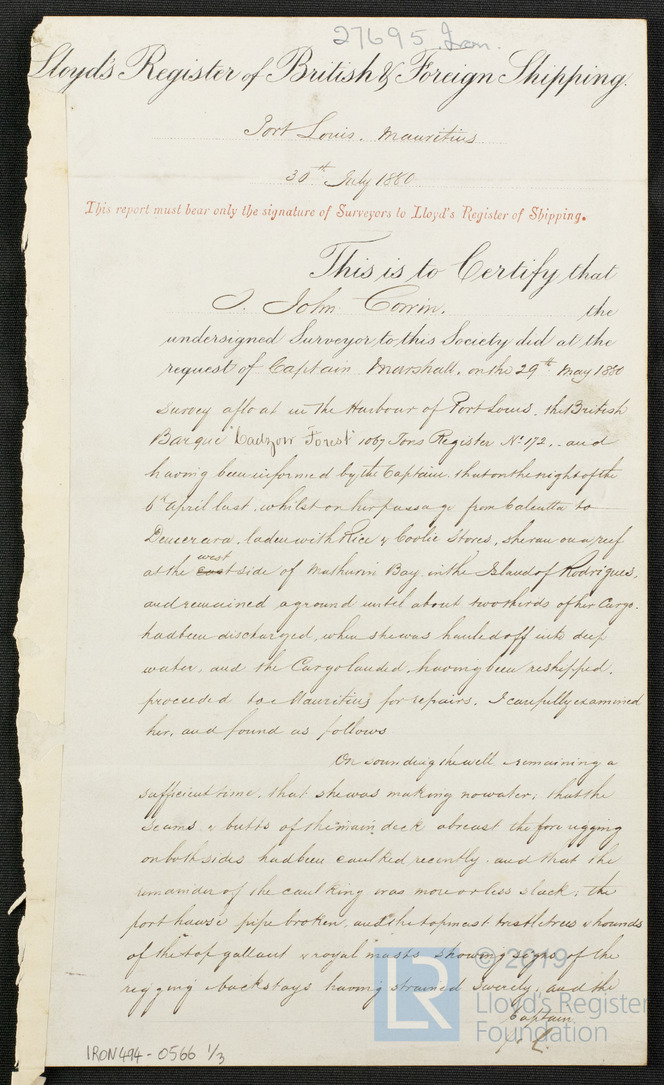 27695 Iron.
Lloyd's Register of British & Foreign Shipping.
Port Louis. Mauritius
30th July 1880
This report must bear only the signature of Surveyors to Lloyd's Register of Shipping.
This is to Certify that
I. John Corrin. the
undersigned Surveyor to this Society did at the
request of Captain Marshall. on the 29th May 1880
survey afloat in the Harbour of Port Louis. the British
Barque "Cadzow Forest" 1067 Tons Register No. 172. and
having been informed by the Captain. that on the night of the
6th April last. whilst on her passage from Calcutta to
Demerara. laden with Rice & Coolie Stores, she ran on a reef
at the east west side of Mathurin Bay. in the Island of Rodrigues.
and remained aground until about two thirds of her Cargo.
had been discharged, when she was hauled off into deep
water. and the Cargo landed, having been reshipped.
proceeded to Mauritius for repairs. I carefully examined
her, and found as follows
On sounding the well remaining a
sufficient time. that she was making no water; that the
seams & butts of the main deck abreast the fore rigging
on both sides had been caulked recently. and that the
remainder of the caulking was more or less slack; the
port hawse pipe broken, and the topmast trestletrees & hounds
of the top gallant & royal masts showing signs of the
rigging & backstays having strained severely; and the
Captain
IRON494-0566 1/3
LR
© 2019
Lloyd's Register
Foundation